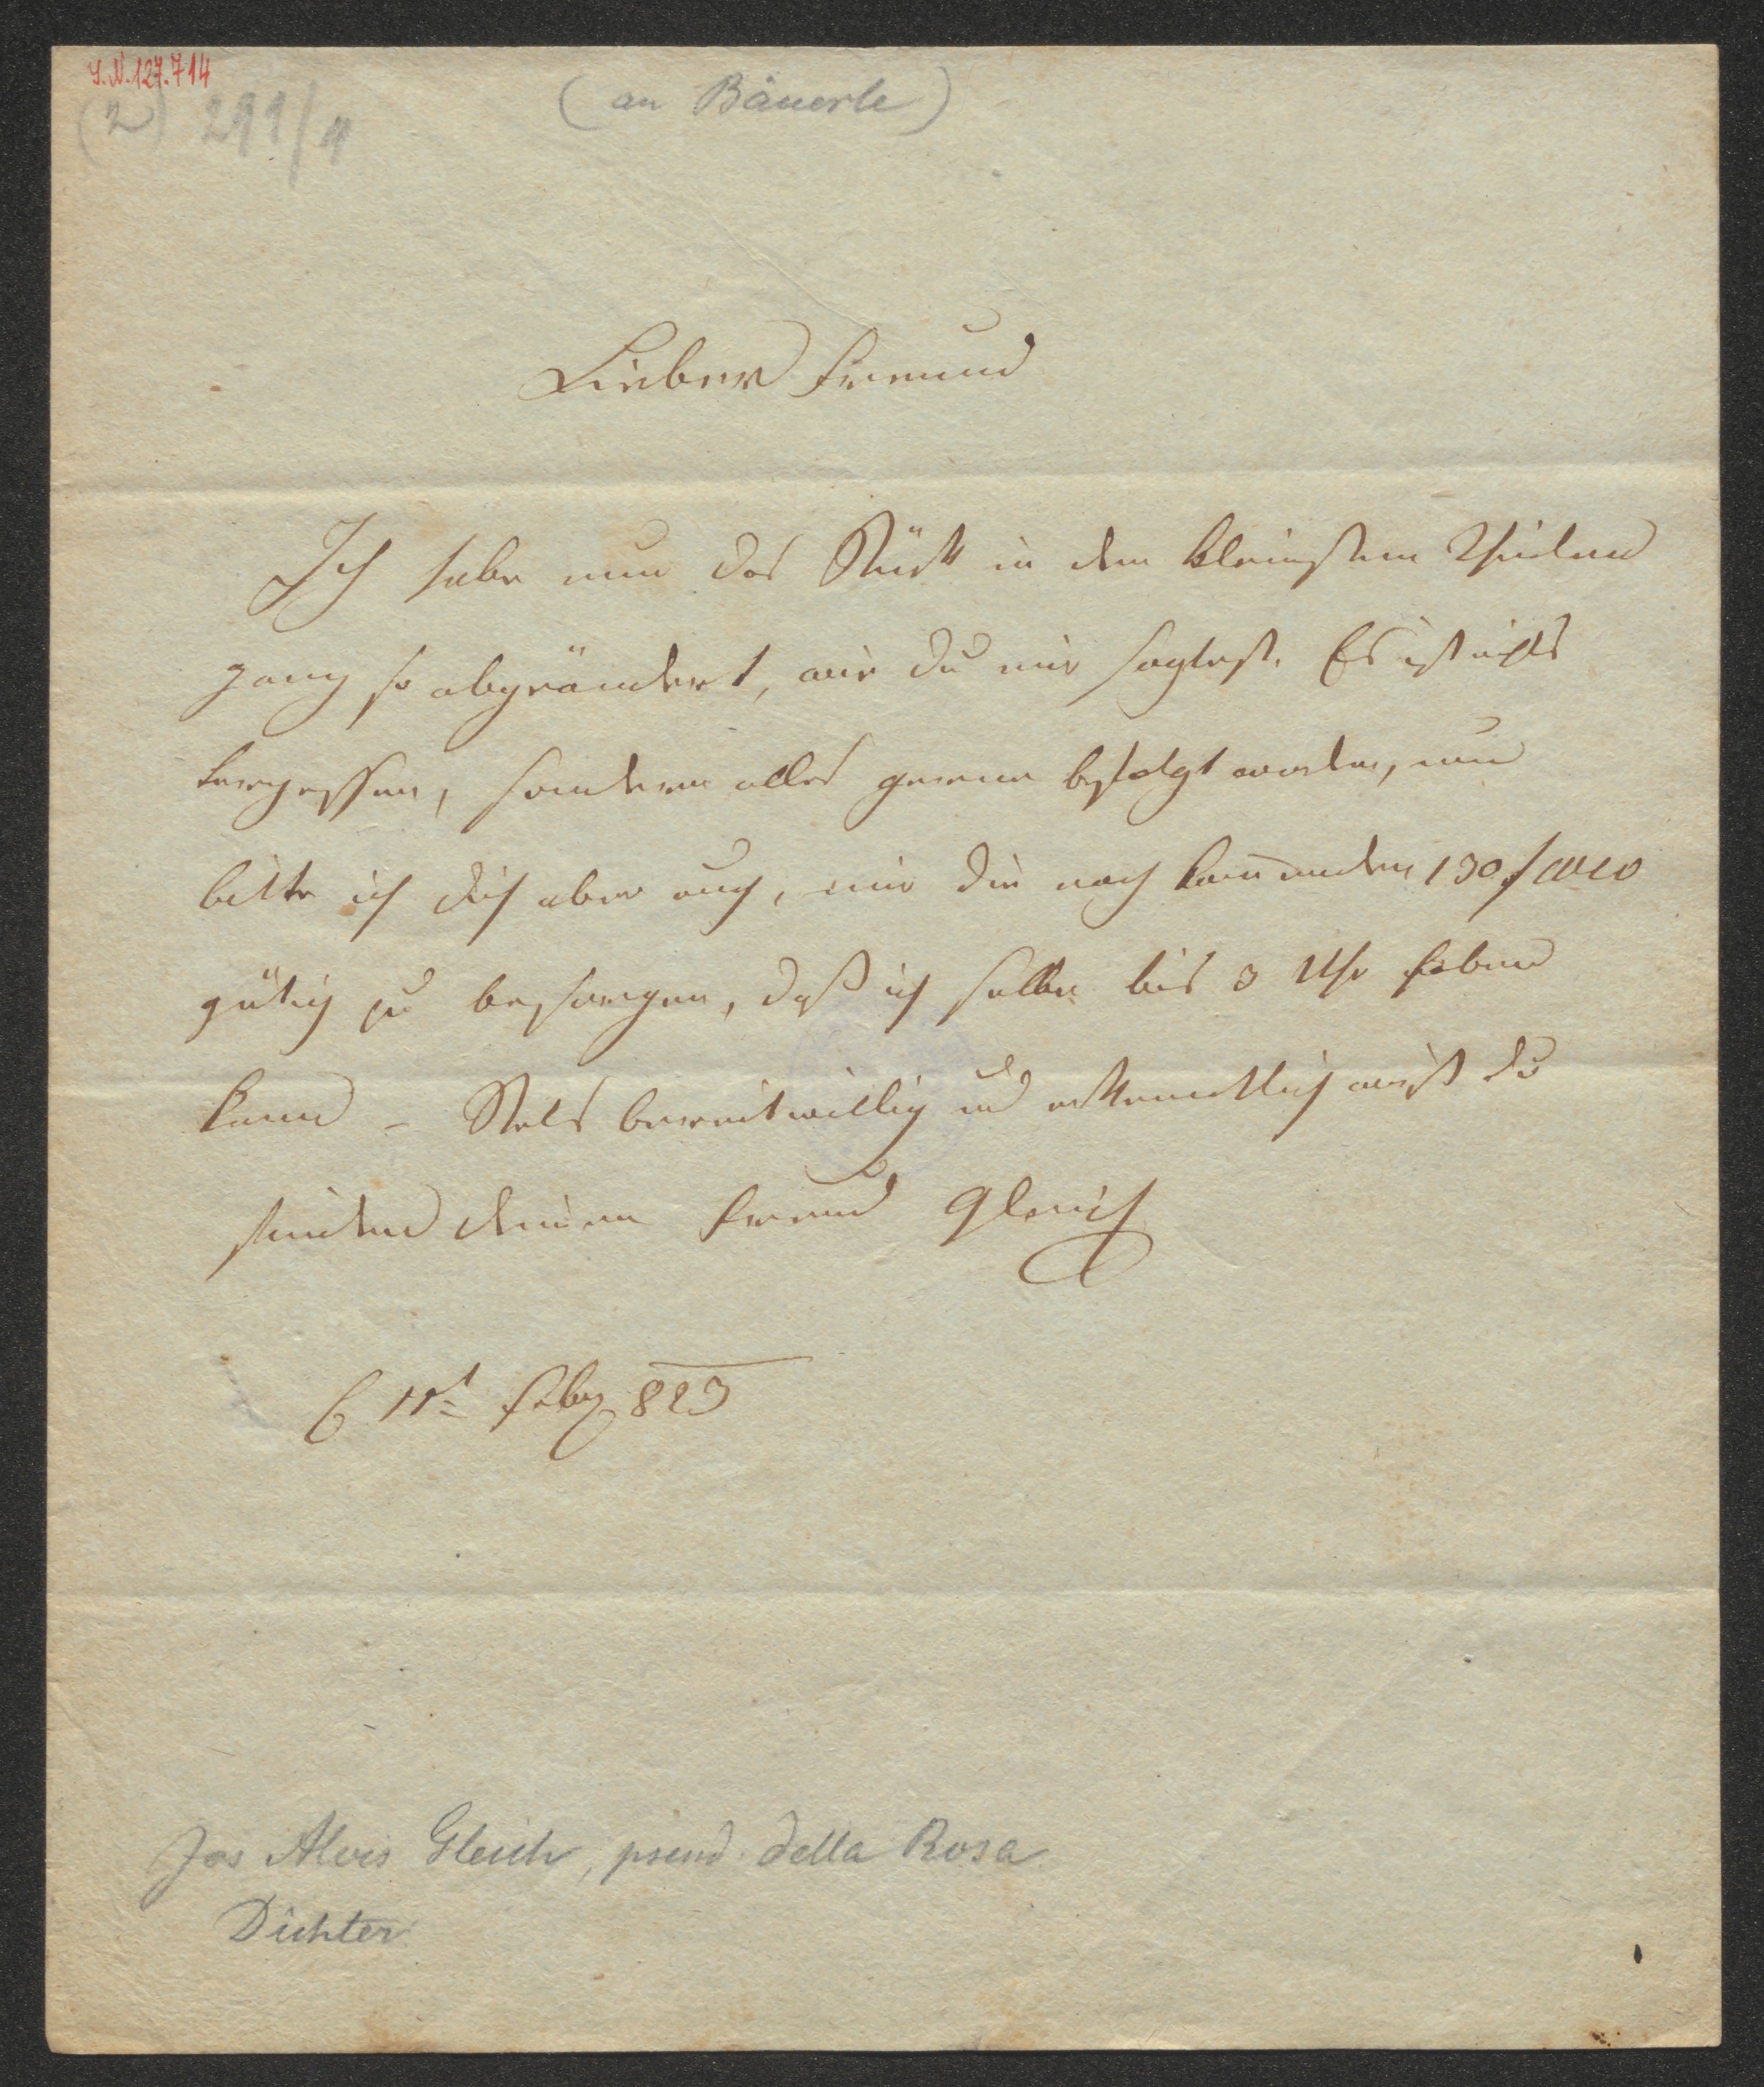 I. N. 127.714
(2) 291/4
(an Bäuerle)
Lieber Freund
Ich habe nun das Stück in den kleinsten Theilen
ganz so abgeändert, wie du mir sagtest. Es ist nichts
vergessen, sondern alles genau befolgt worden, nun
bitte ich dich aber auch, mir die noch kommenden 130 f
gütig zu besorgen, daß ich selbe bis 3 Uhr haben
kann – Stets bereitwillig und erkenntlich wirst du
finden deinen Freund Gleich
11t Febr 823
Jos Alois Gleich, pseud. della Rosa
Dichter